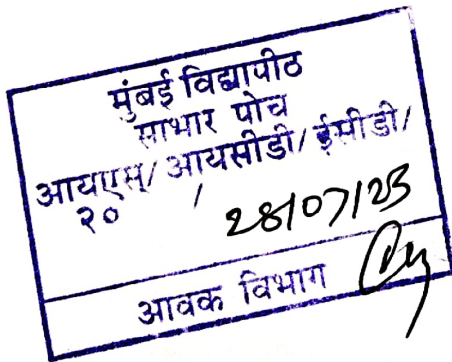 मुंबई विद्यापीठ
साभार पोच
आयएस/आयसीडी/ईसीडी/
२० / 28/07/23
आवक विभाग